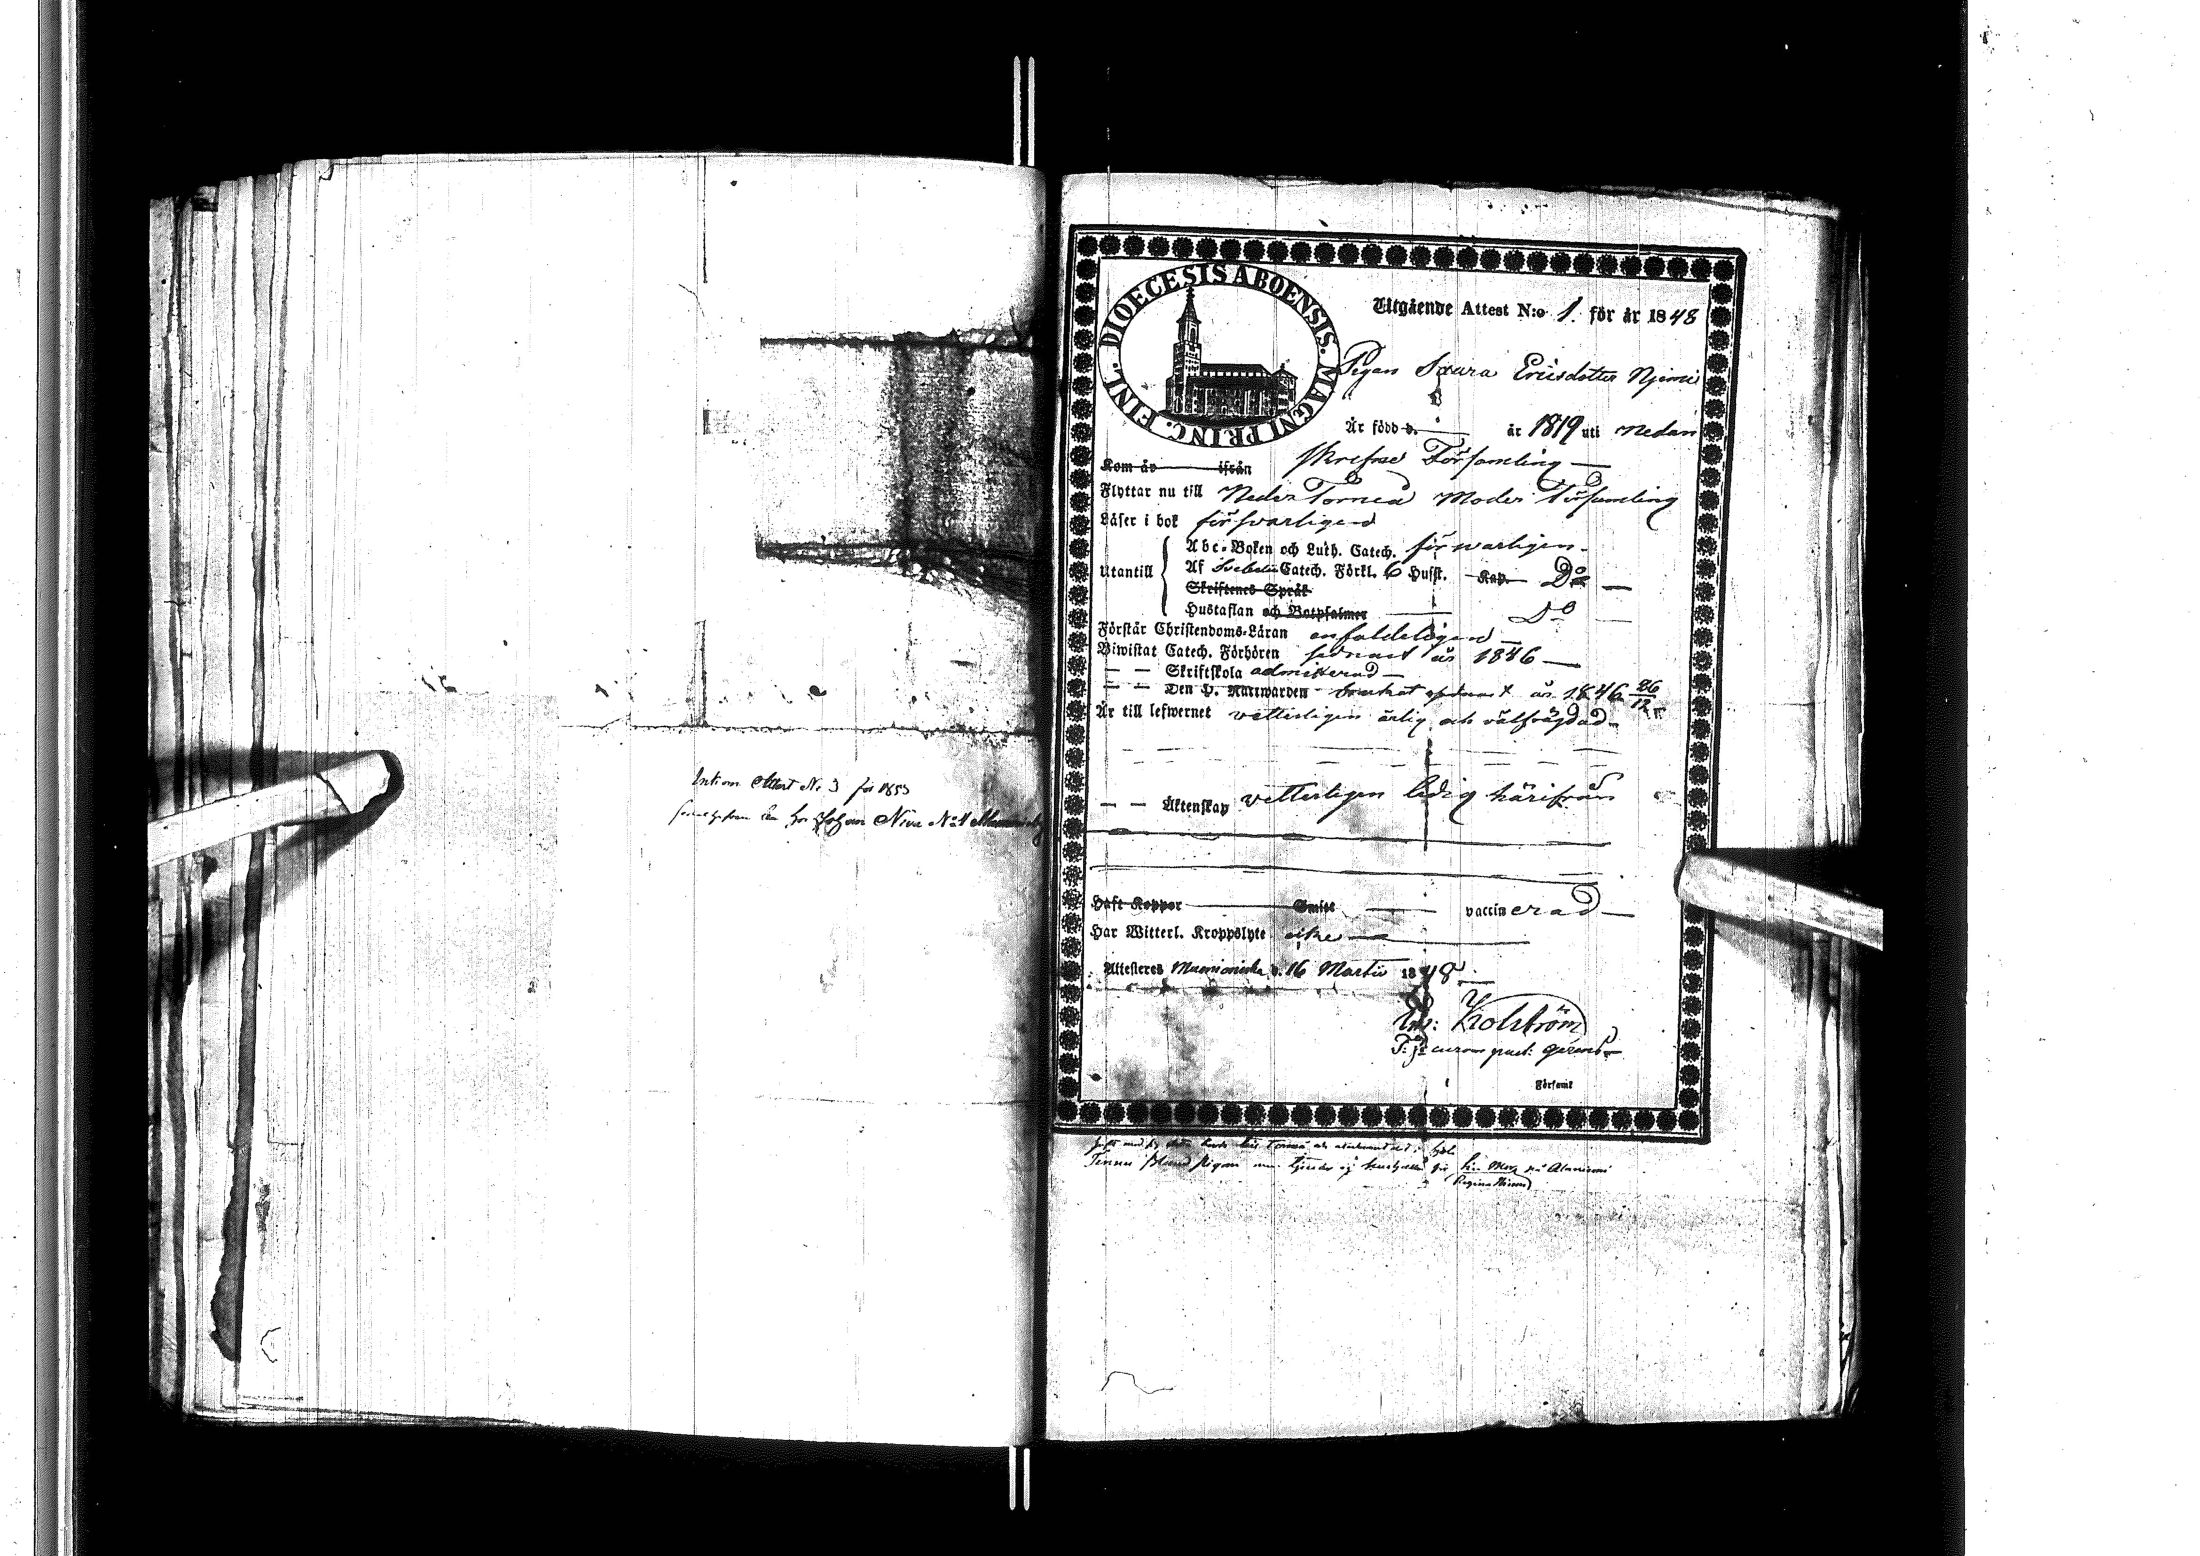 Attest N. 3 för 1853
Johan Niva N:o 1
DIOECESIS ABOENSIS. MAGNI PRINC. FINL.
Utgående Attest N:o 1. för år 1848
Pigan Saara Ericsdotter
Är född d. år 1819 uti nedan
skrefne Församling
Kom år ifrån
Flyttar nu till Neder Torneå Moder Församling
Läser i bok försvarligen
Utantill
Abc-Boken och Luth. Catech. försvarligen
Af Svebelii Catech. Förkl. 6 Hufst. Kap. D:o
Skriftenes Språk
Hustaflan och Botpsalmer D:o
Förstår Christendoms-Läran enfaldeligen
Biwistat Catech. Förhören senast år 1846
— — Skriftskola admitterad
— — Den H. Nattwarden senast år 1846 26/12
Är till lefwernet vetterligen ärlig och välfrägdad
— — Äktenskap vetterligen ledig härifrån
Haft Koppor Smitt vaccinerad
Har Witterl. Kroppslyte icke
Attesteras Muonioniska d. 16 Martii 1848
Kolström
Församl